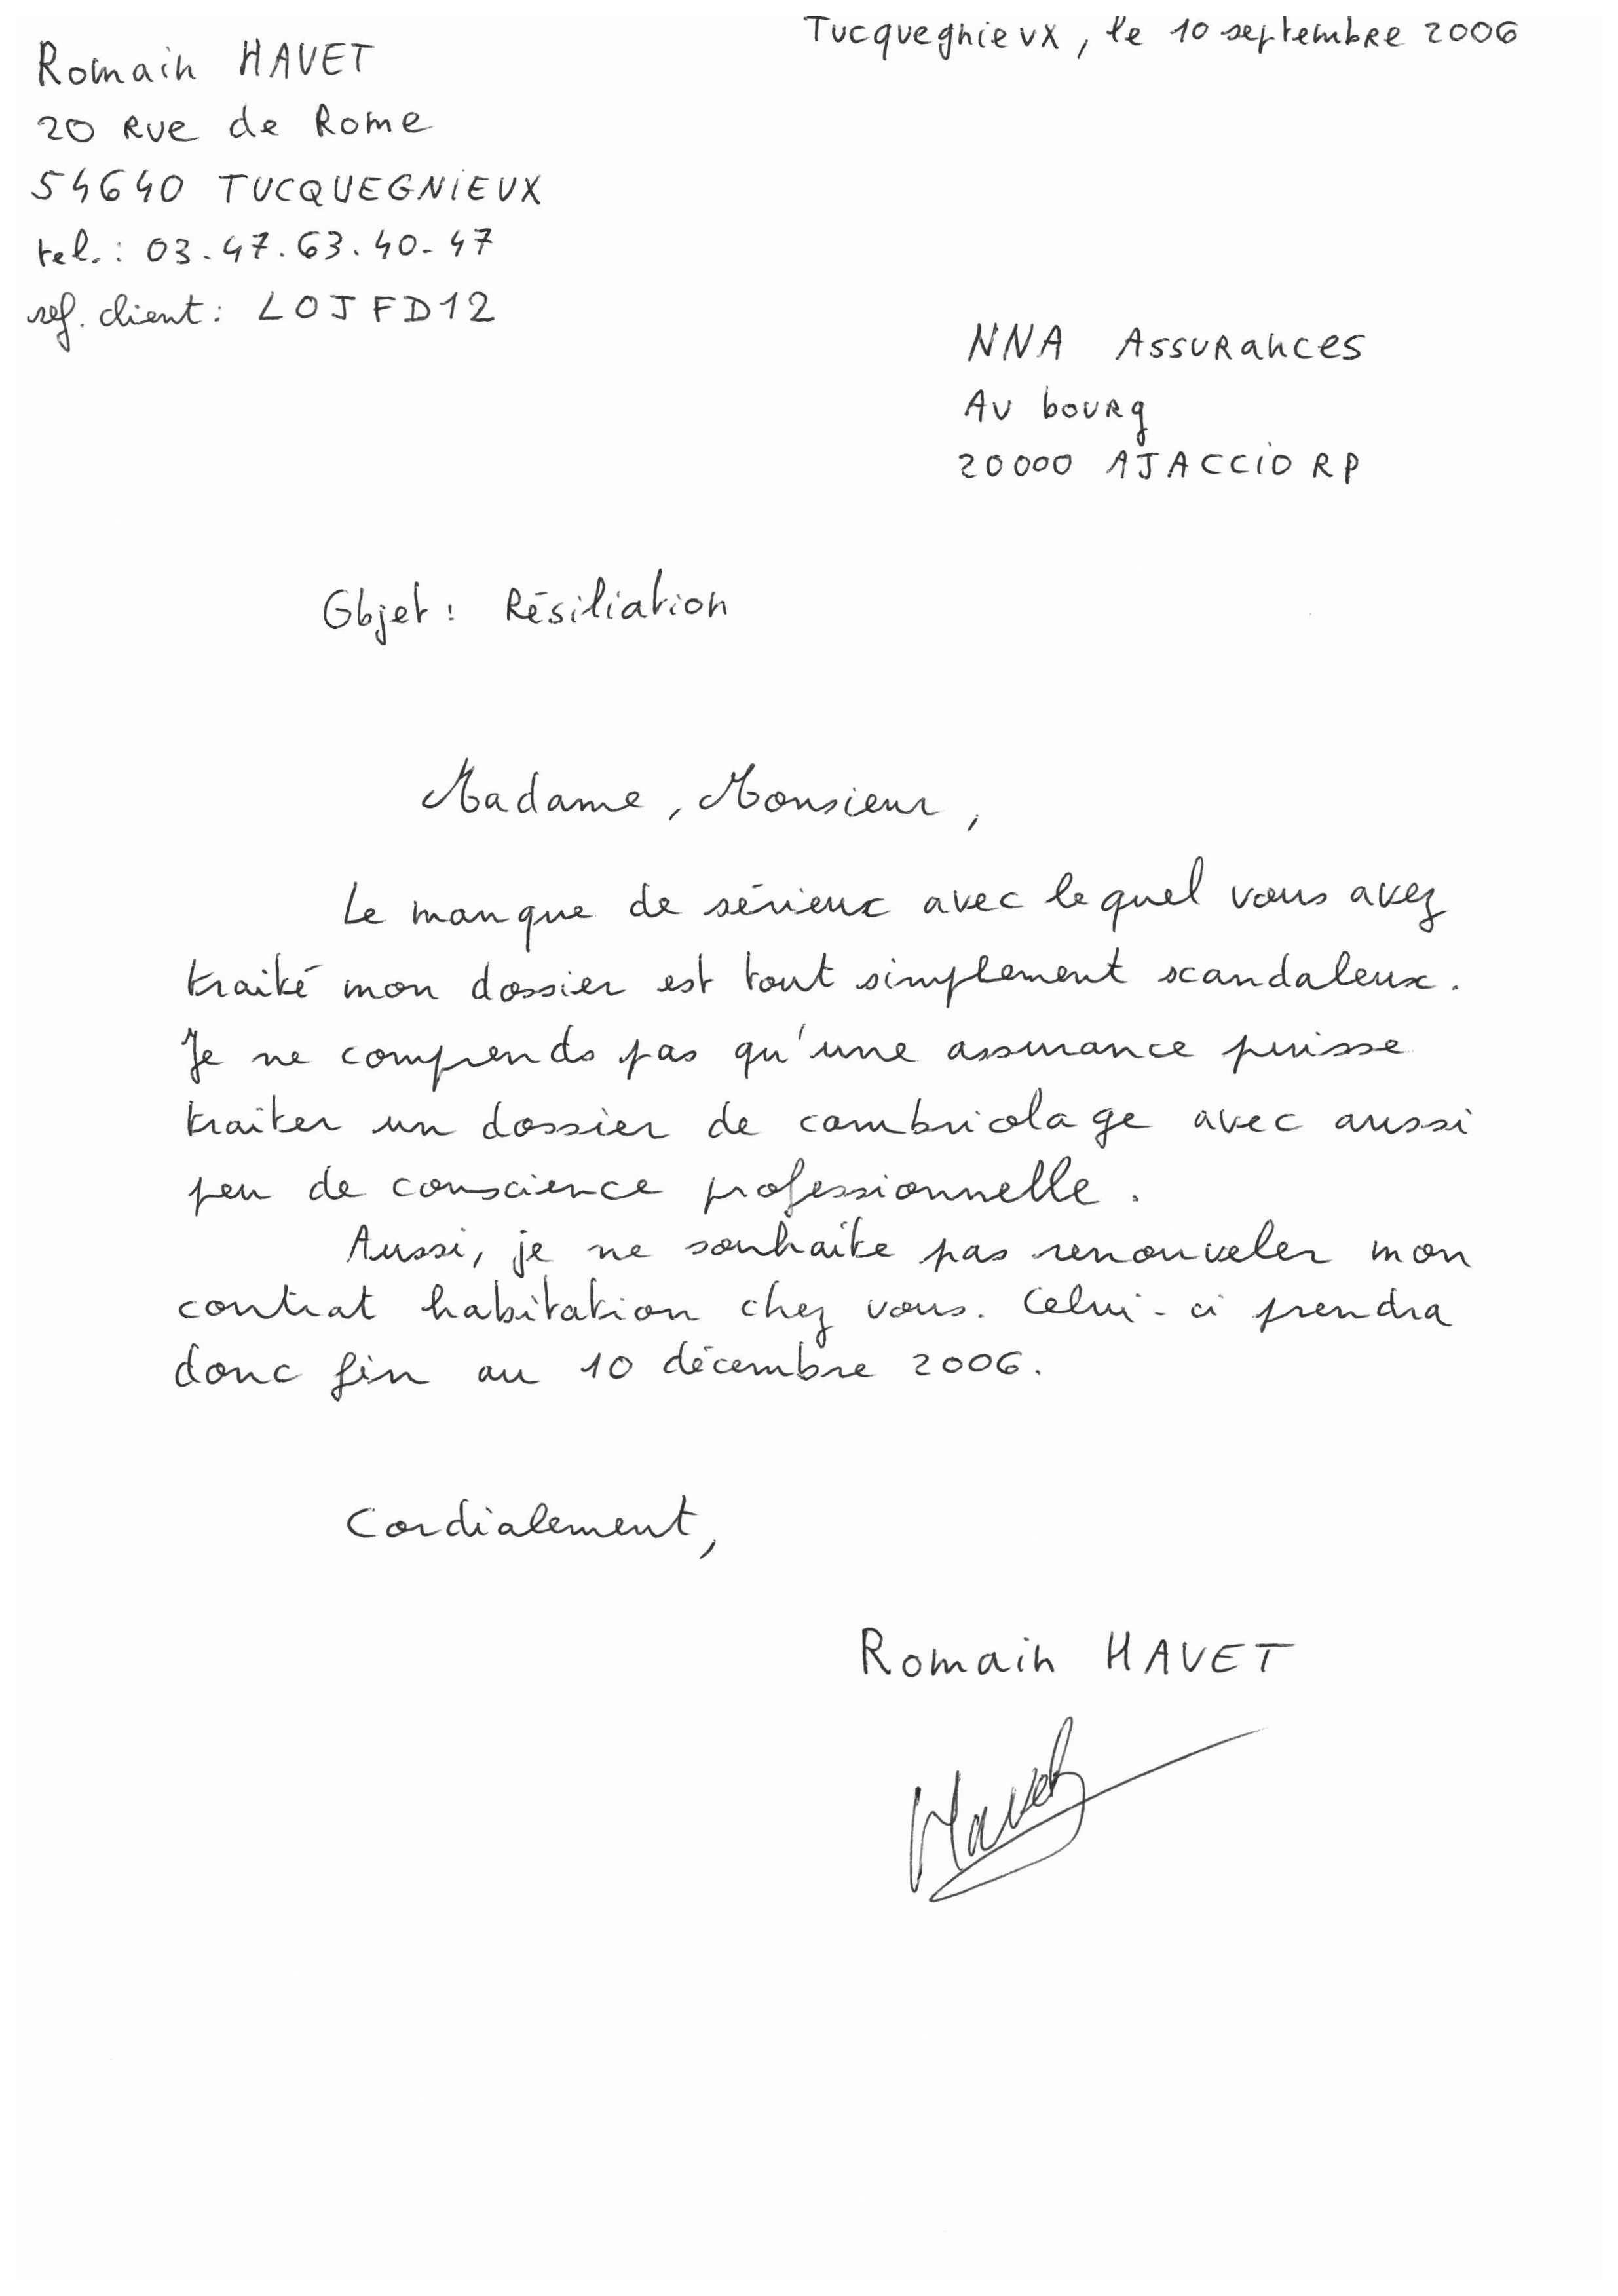 Tucquegnieux, le 10 septembre 2006
Romain HAVET
20 Rue de Rome
54640 TUCQUEGNIEUX
tel. : 03.47.63.40.47
ref. client : LOJFD12
NNA Assurances
Au bourg
20000 AJACCIO RP
Objet : Résiliation
Madame, Monsieur,
Le manque de sérieux avec lequel vous avez
traité mon dossier est tout simplement scandaleux.
Je ne comprends pas qu'une assurance puisse
traiter un dossier de cambriolage avec aussi
peu de conscience professionnelle.
Aussi, je ne souhaite pas renouveler mon
contrat habitation chez vous. Celui-ci prendra
donc fin au 10 décembre 2006.
Cordialement,
Romain HAVET
Havet